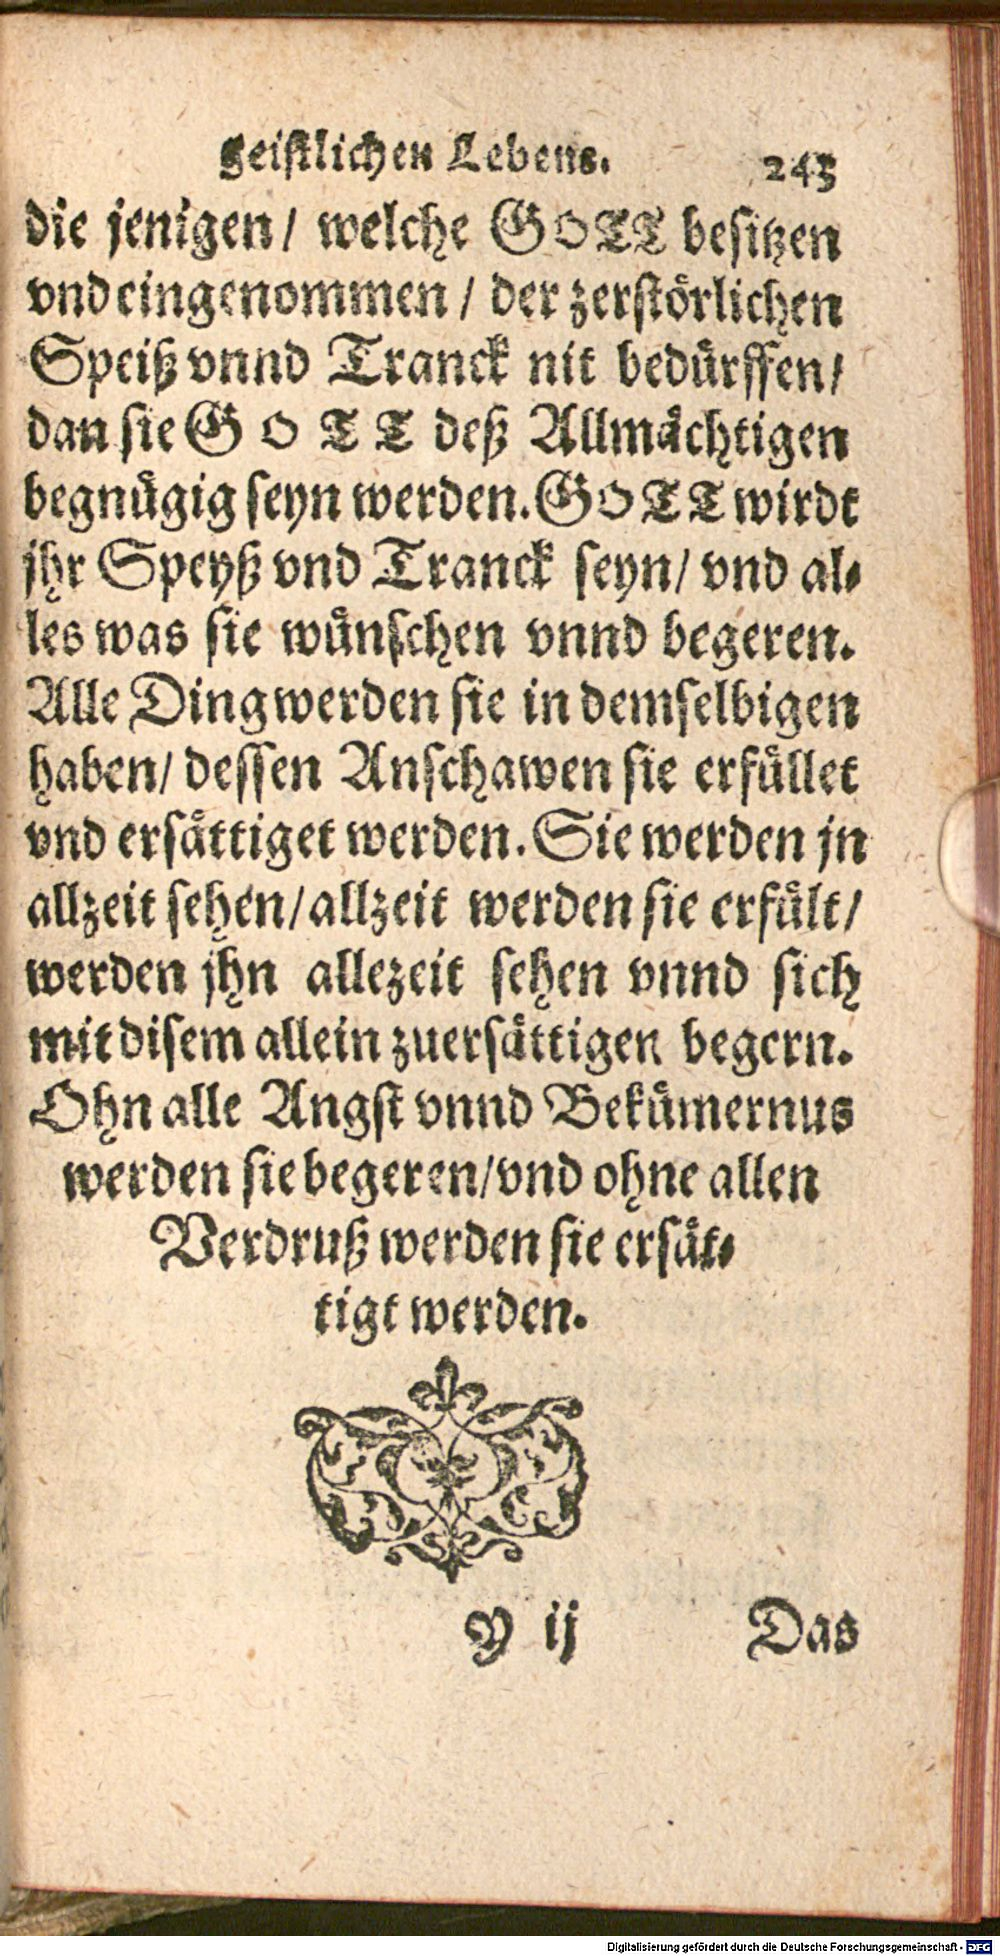 geistlichen Lebens. 243
die jenigen / welche GOTT besitzen
vnd eingenommen / der zerstörlichen
Speiß vnnd Tranck nit bedürffen /
dan sie GOTT deß Allmächtigen
begnügig seyn werden. GOTT wirdt
jhr Speyß vnd Tranck seyn / vnd al-
les was sie wünschen vnnd begeren.
Alle Ding werden sie in demselbigen
haben / dessen Anschawen sie erfüllet
vnd ersättiget werden. Sie werden jn
allzeit sehen / allzeit werden sie erfült /
werden jhn allezeit sehen vnnd sich
mit disem allein zuersättigen begern.
Ohn alle Angst vnnd Bekümernus
werden sie begeren / vnd ohne allen
Verdruß werden sie ersät-
tigt werden.
Y ij Das
Digitalisierung gefördert durch die Deutsche Forschungsgemeinschaft - DFG